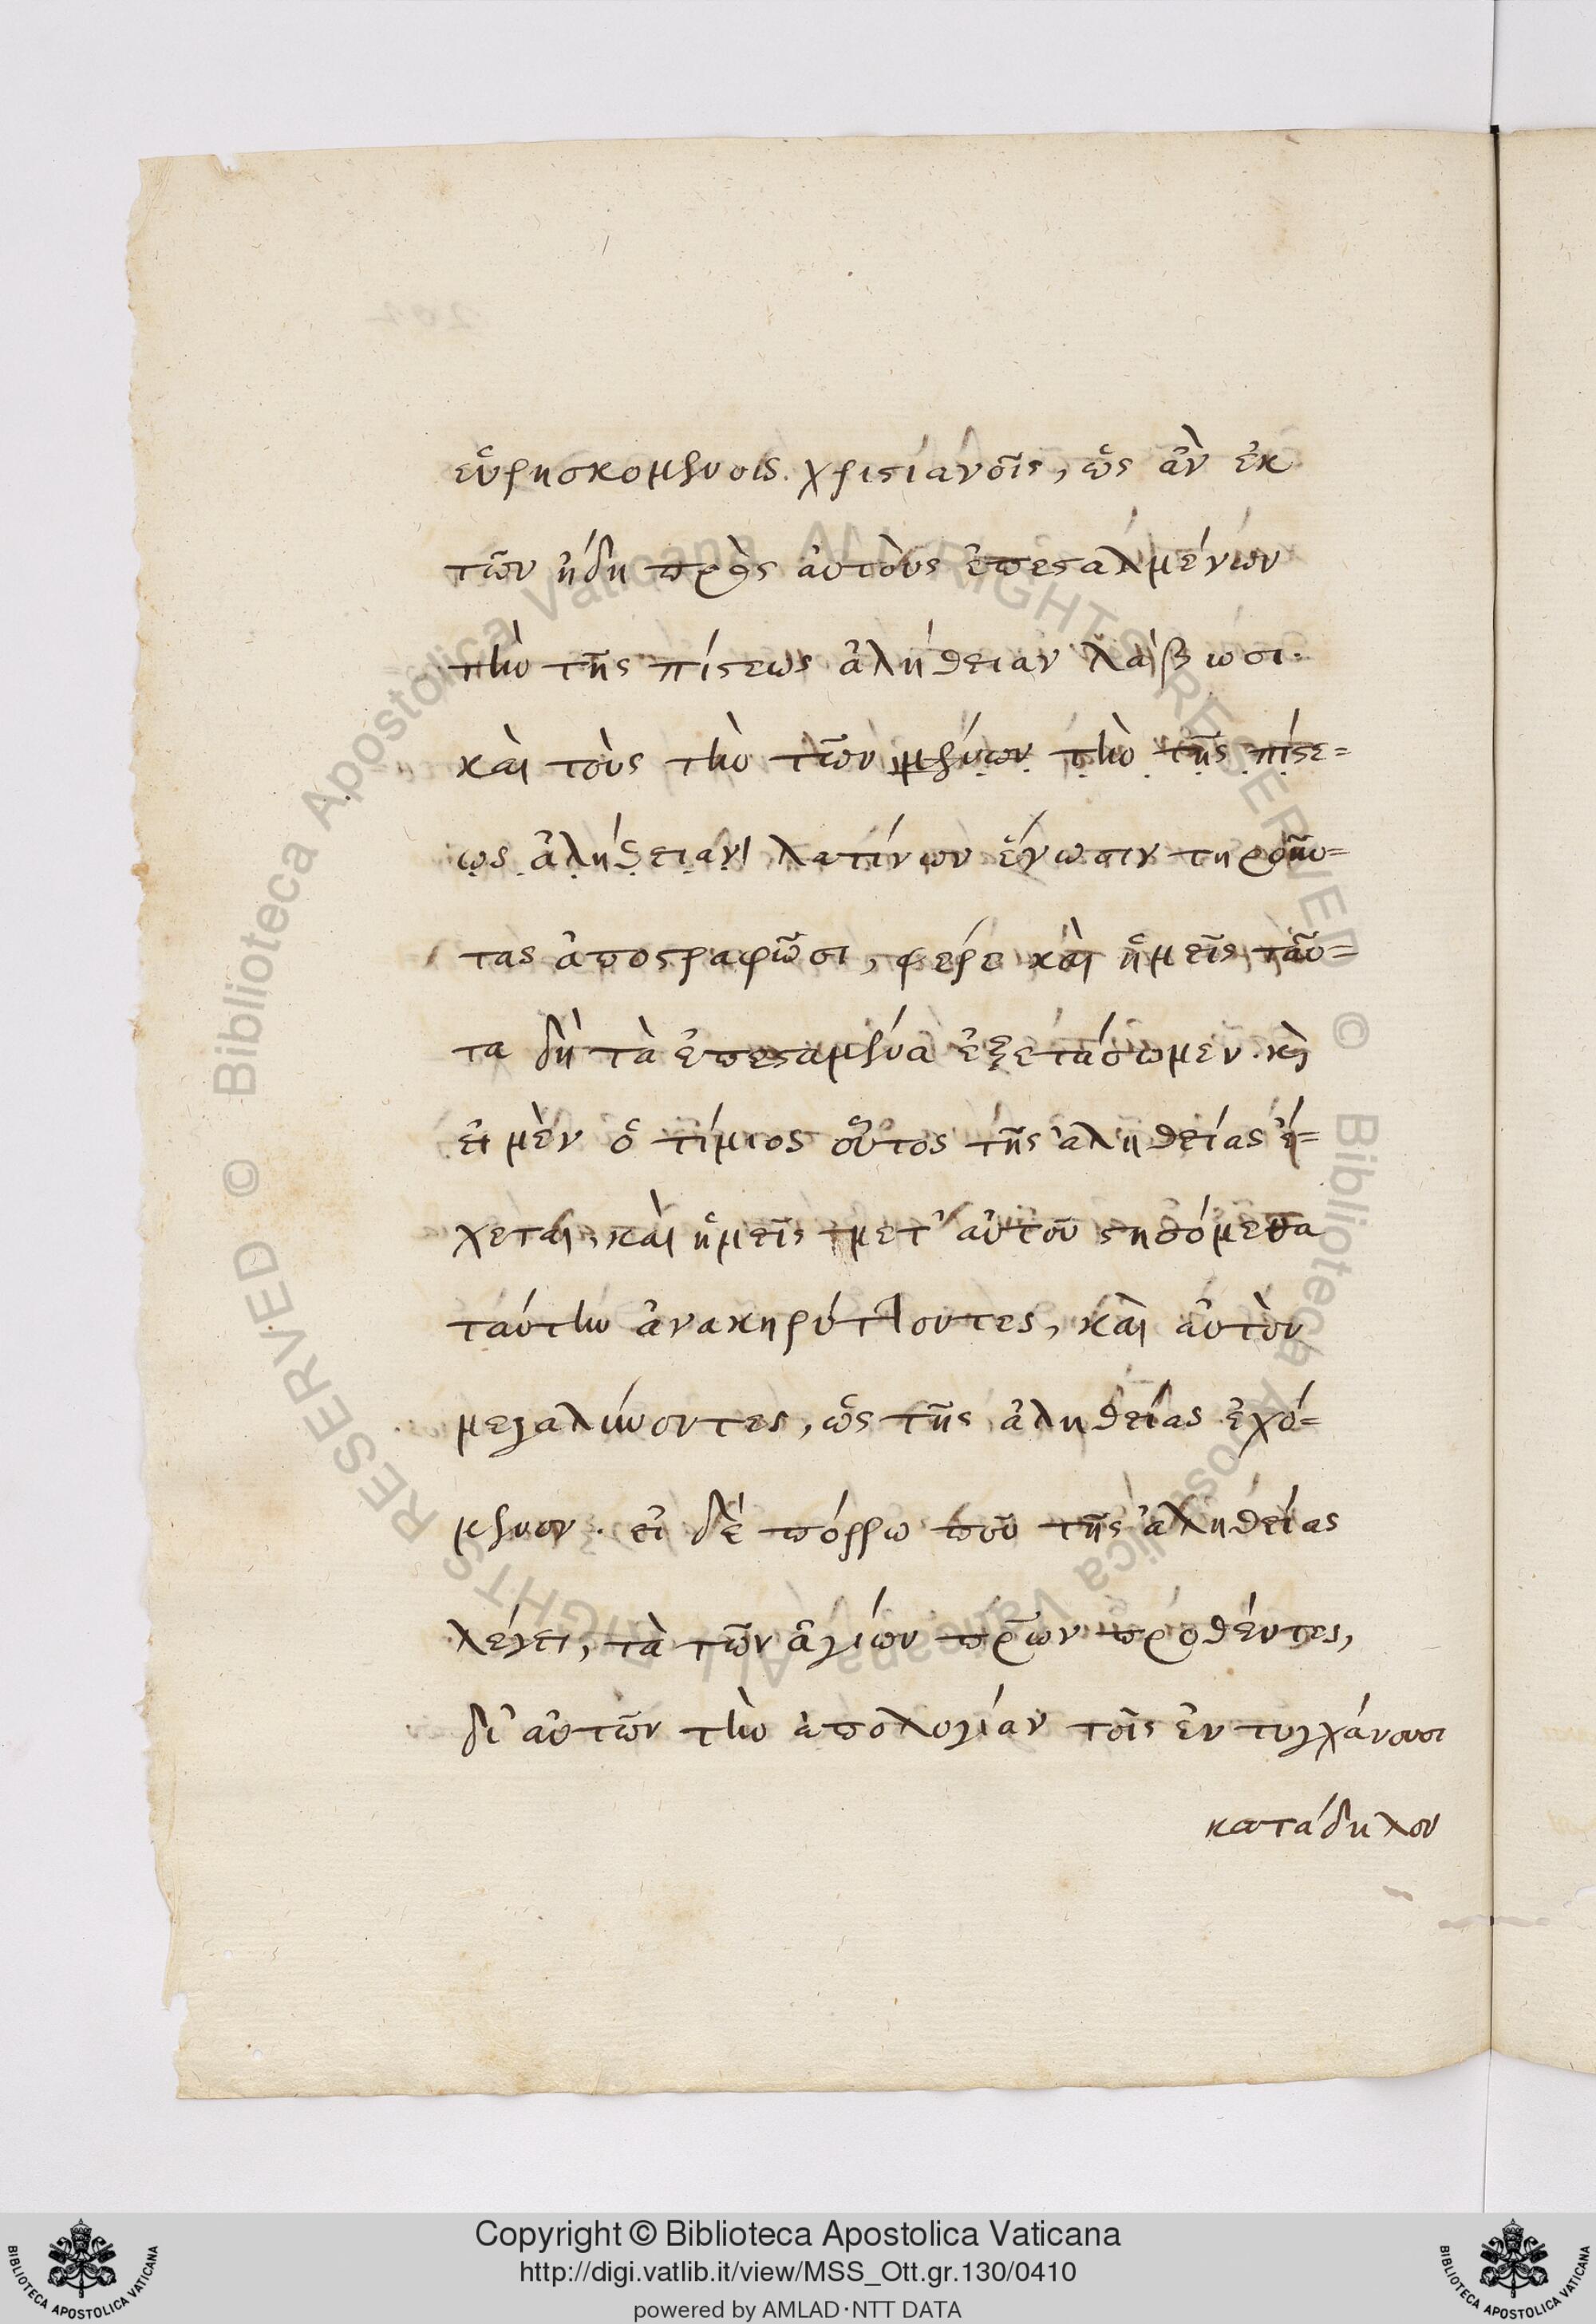 εὑρησκομένοις χριστιανοῖς, ὡς ἂν ἐκ
τῶν ἤδη πρὸς αὐτοὺς ἐπεσταλμένων
τὴν τῆς πίστεως ἀλήθειαν λάβωσι.
καὶ τοὺς τὴν τῶν μένων τὴν τῆς πίστε=
ως ἀλήθειαν λατίνων ἕνωσιν τηροῦν=
τας ἀποστραφῶσι, φέρε καὶ ἡμεῖς ταῦ=
τα δὴ τὰ ἐπεσταμένα ἐξετάσωμεν. καὶ
εἰ μὲν ὁ τίμιος οὗτος τῆς ἀληθείας ἔ=
χεται, καὶ ἡμεῖς μετ' αὐτοῦ στησόμεθα
ταύτην ἀνακηρύττοντες, καὶ αὐτὸν
μεγαλύνοντες, ὡς τῆς ἀληθείας ἐχό=
μενον. εἰ δὲ πόρρω που τῆς ἀληθείας
λέγει, τὰ τῶν ἁγίων πρων προθέντες,
δι' αὐτῶν τὴν ἀπολογίαν τοῖς ἐν τυγχάνουσι
κατάδηλον
Biblioteca Apostolica Vaticana ALL RIGHTS RESERVED ©
Biblioteca Apostolica Vaticana ALL RIGHTS RESERVED ©
Copyright © Biblioteca Apostolica Vaticana
http://digi.vatlib.it/view/MSS_Ott.gr.130/0410
powered by AMLAD·NTT DATA
BIBLIOTECA APOSTOLICA VATICANA
BIBLIOTECA APOSTOLICA VATICANA